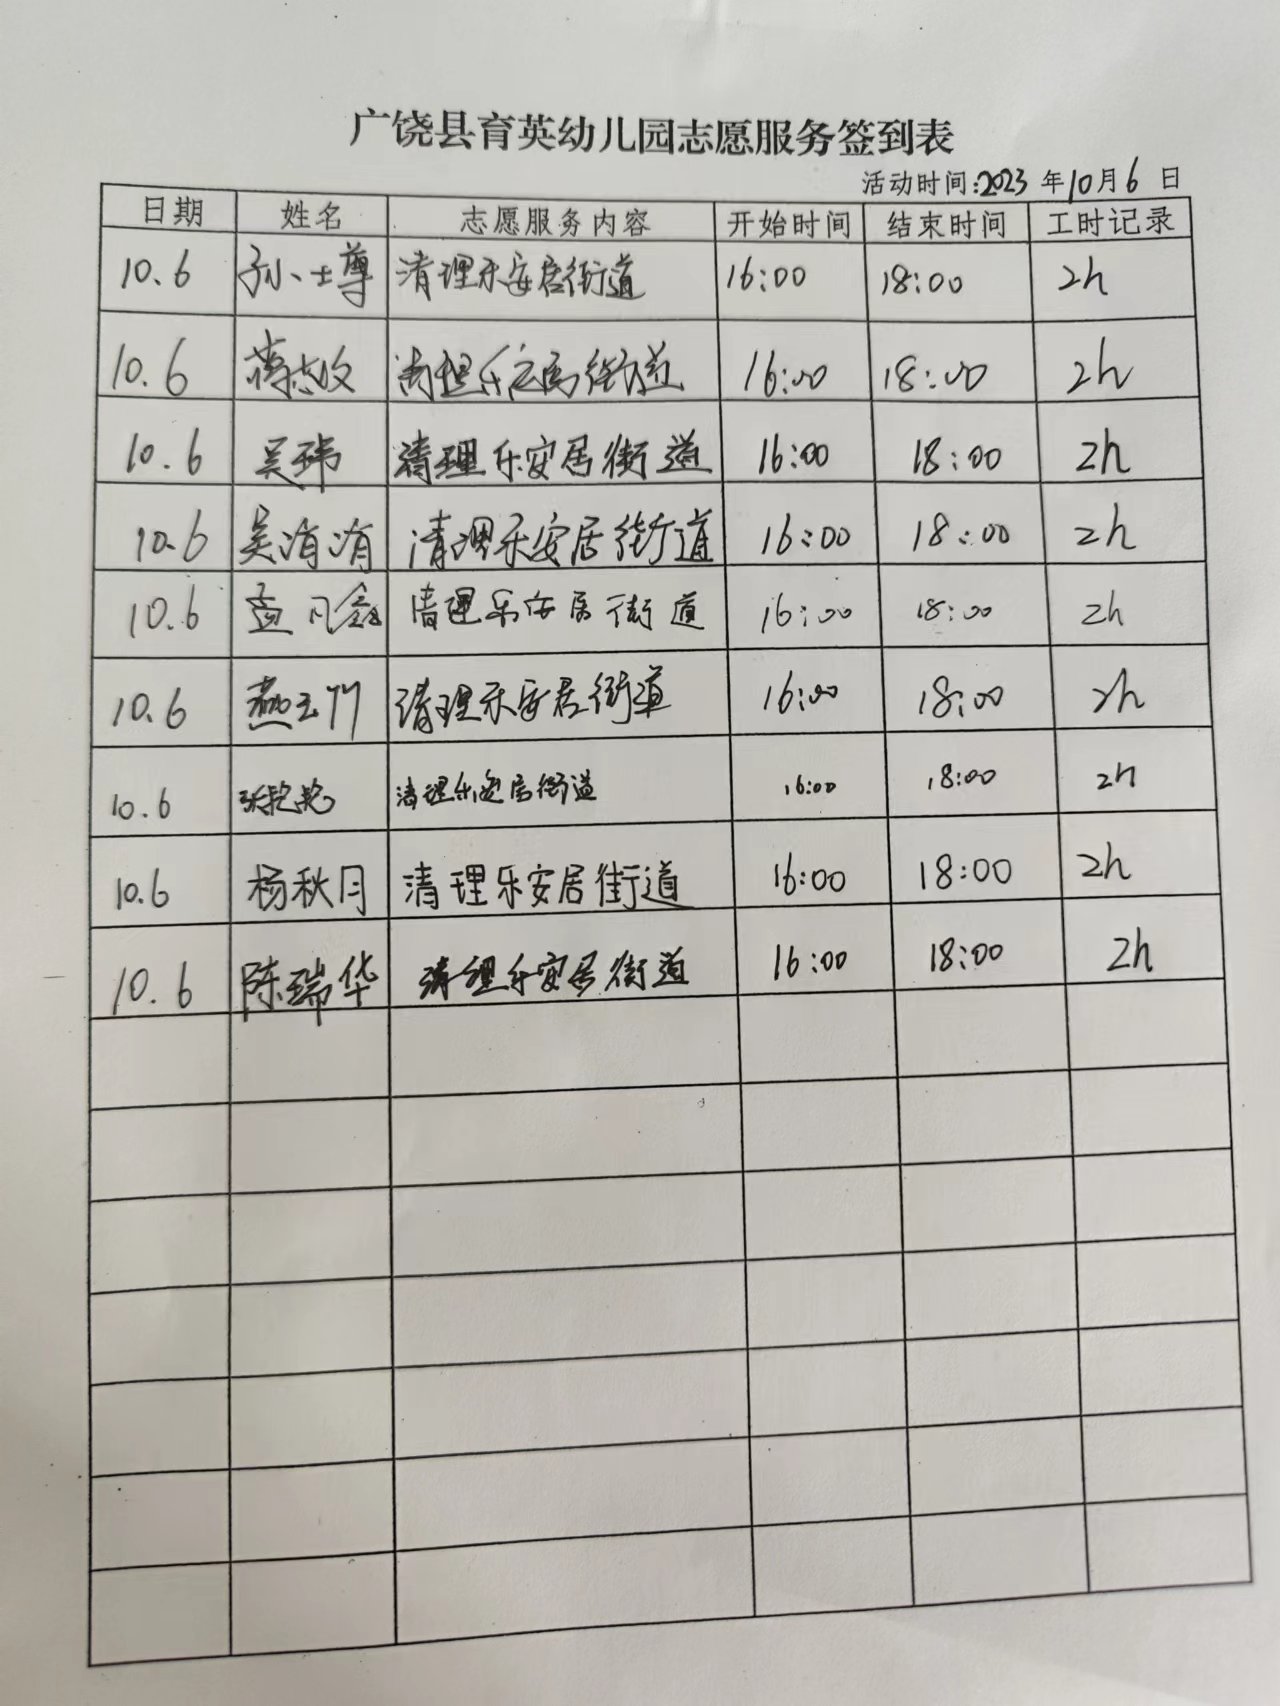 广饶县育英幼儿园志愿服务签到表
活动时间:2023 年10月6 日
日期 姓名 志愿服务内容 开始时间 结束时间 工时记录
10.6 孙士尊 清理乐安居街道 16:00 18:00 2h
10.6 蒋志文 清理乐安居街道 16:00 18:00 2h
10.6 吴玮 清理乐安居街道 16:00 18:00 2h
10.6 吴涓涓 清理乐安居街道 16:00 18:00 2h
10.6 孟凡鑫 清理乐安居街道 16:00 18:00 2h
10.6 燕玉 清理乐安居街道 16:00 18:00 2h
10.6 张艳艳 清理乐安居街道 16:00 18:00 2h
10.6 杨秋月 清理乐安居街道 16:00 18:00 2h
10.6 陈瑞华 清理乐安居街道 16:00 18:00 2h